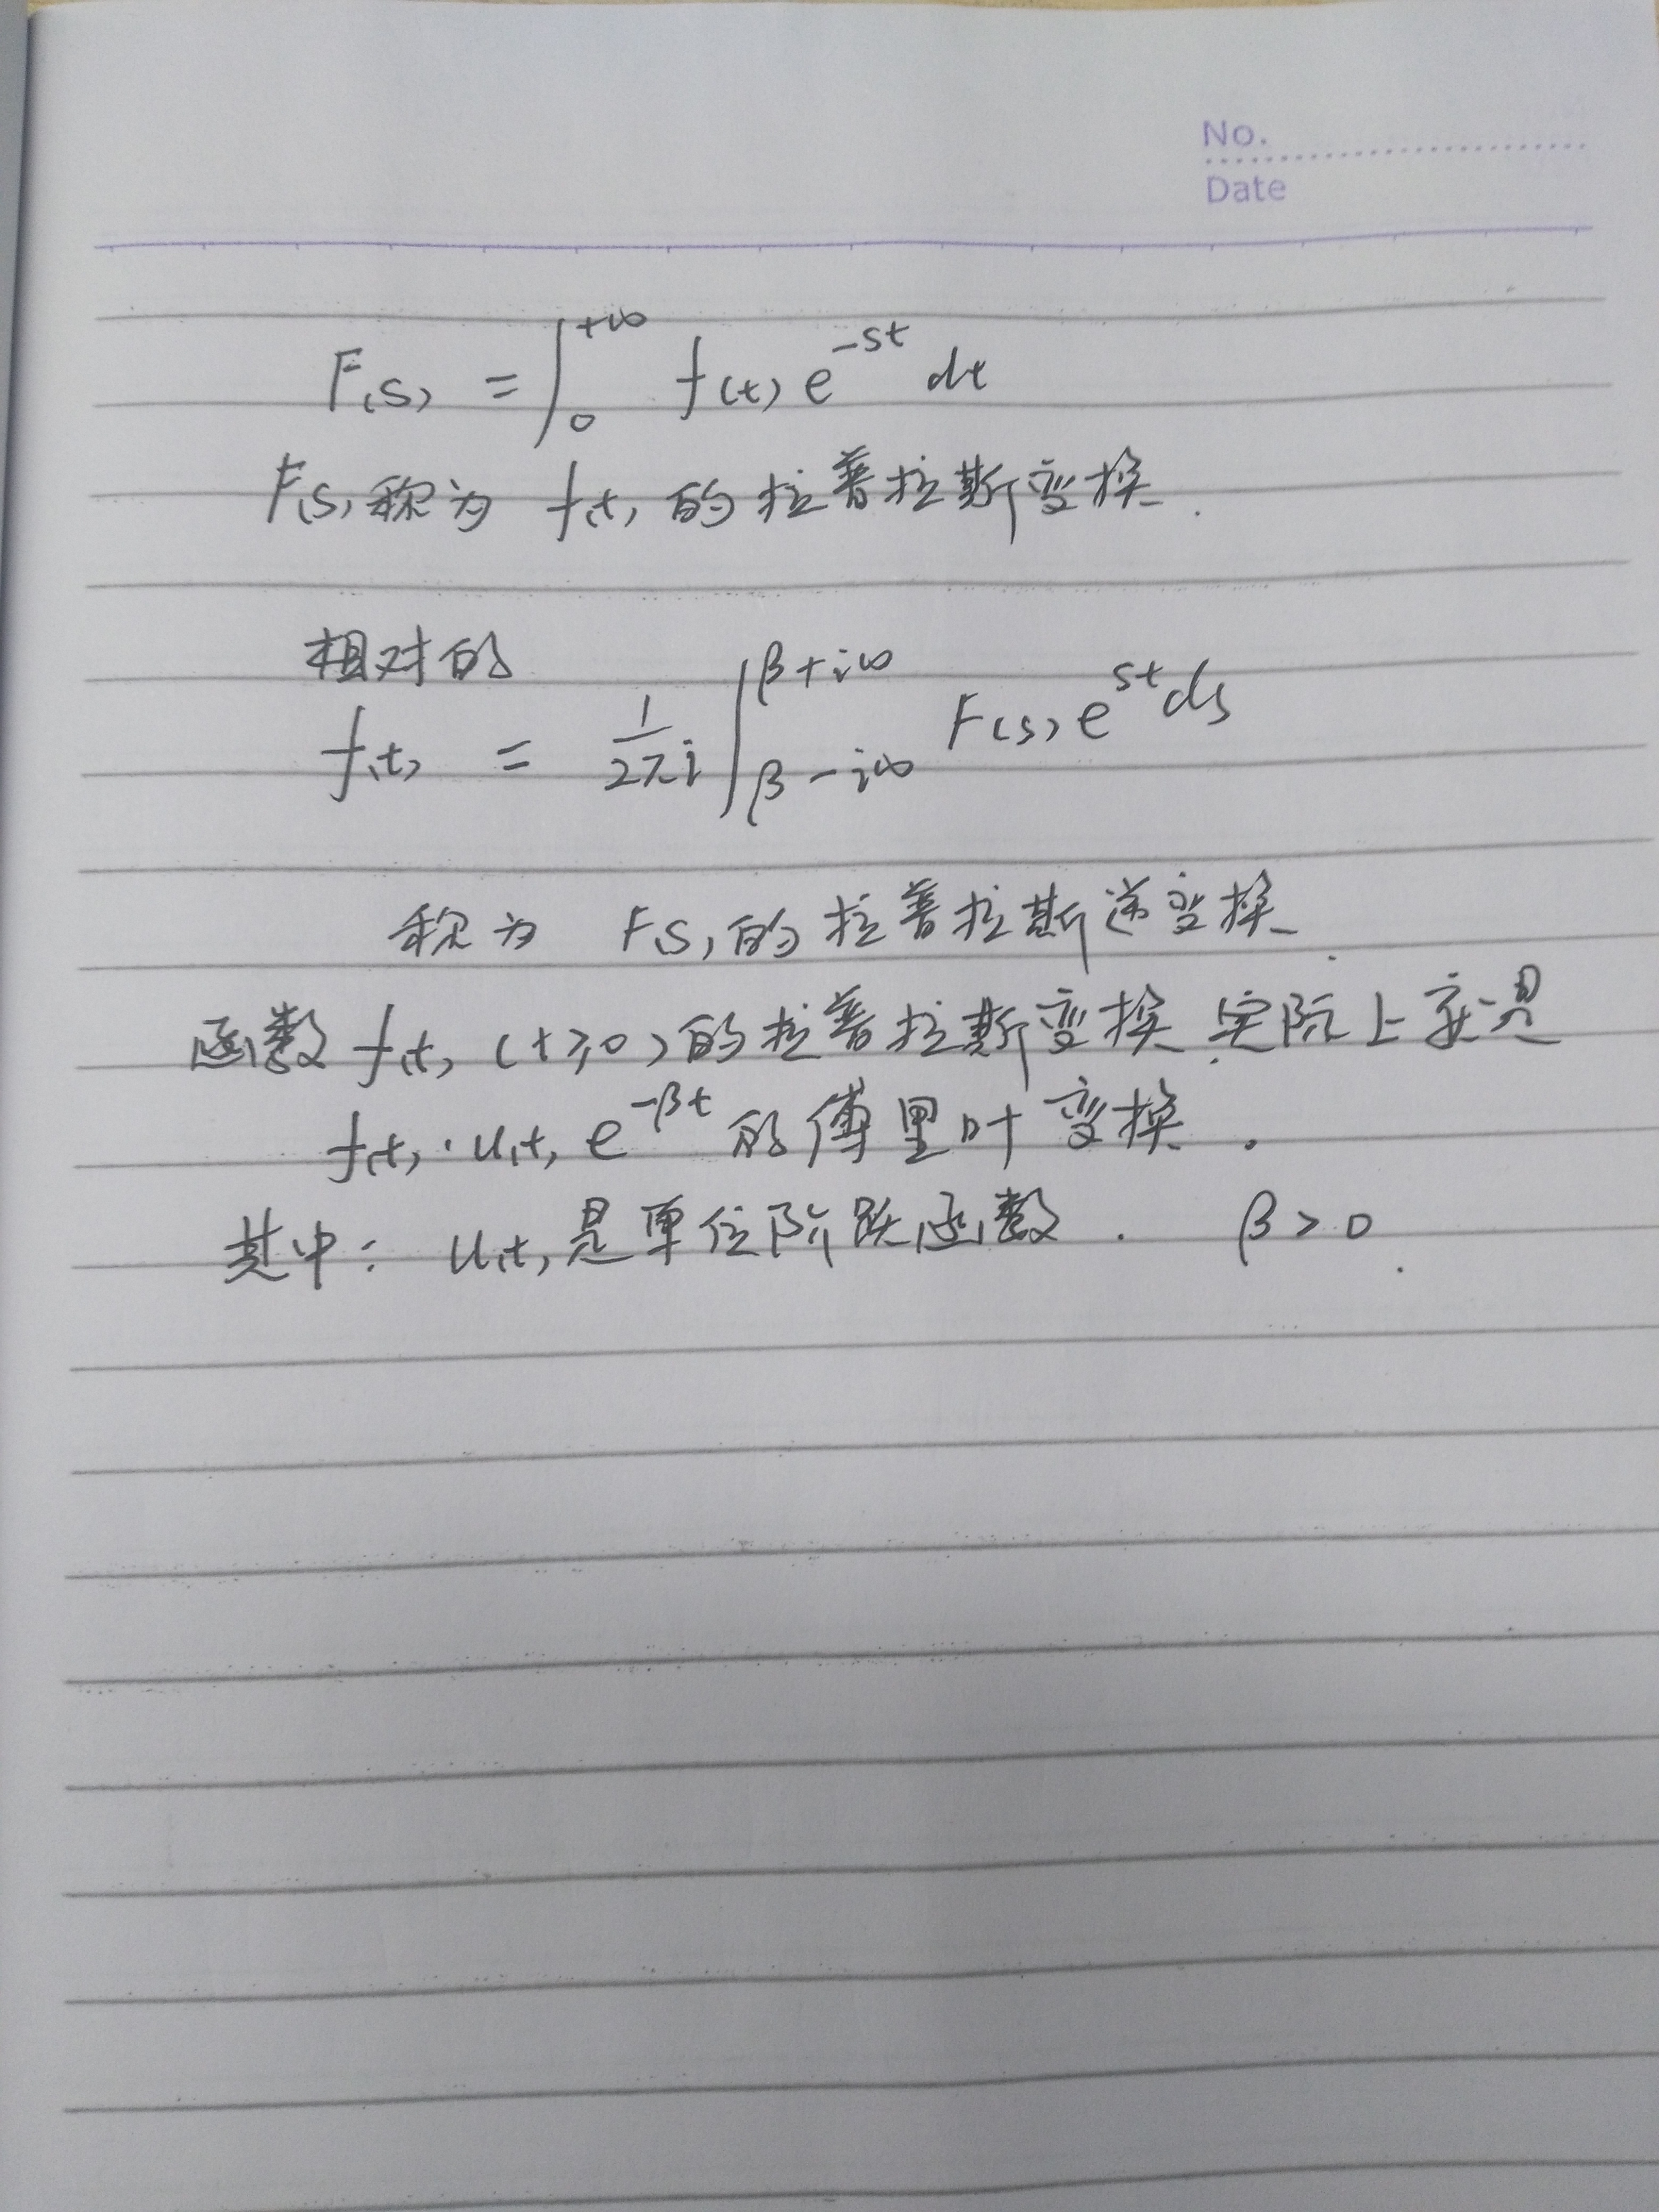 No.
Date
F(s) = ∫₀^{+∞} f(t) e^{-st} dt
F(s)称为 f(t)的拉普拉斯变换.
相对的
f(t) = \frac{1}{2πi} ∫_{β-i∞}^{β+i∞} F(s) e^{st} ds
称为 F(s)的拉普拉斯逆变换.
函数 f(t) (t≥0)的拉普拉斯变换.实际上就是
f(t)·u(t) e^{-βt} 的傅里叶变换.
其中: u(t)是单位阶跃函数. β>0.